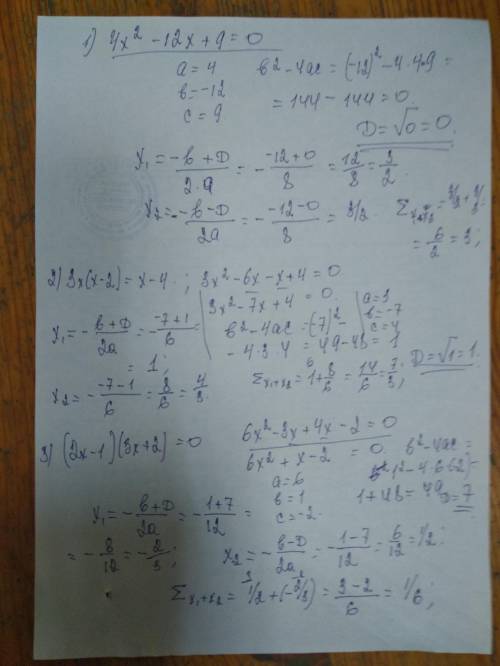 1) 4x² -12x + 9 = 0
a = 4
b = -12
c = 9
b² - 4ac = (-12)² - 4·4·9 =
= 144 - 144 = 0.
D = √0 = 0.
x₁ = -b + D / 2·a = - -12+0 / 8 = 12/8 = 3/2.
x₂ = - b - D / 2a = - -12-0 / 8 = 3/2.
Σx₁+x₂ = 3/2 + 3/2 =
= 6/2 = 3;
2) 3x(x-2) = x-4 ; 3x² - 6x - x + 4 = 0.
3x² - 7x + 4 = 0.
a = 3
b = -7
c = 4
b² - 4ac = (7)² -
- 4·3·4 = 49 - 48 = 1
D = √1 = 1.
x₁ = - b+D / 2a = - -7+1 / 6 =
= 1;
x₂ = - -7-1 / 6 = 8/6 = 4/3
Σx₁+x₂ = 1 + 8/6 = 14/6 = 7/3;
3) (2x-1)(3x+2) = 0
6x² - 3x + 4x - 2 = 0
6x² + x - 2 = 0.
a = 6
b = 1
c = -2
b² - 4ac =
1² - 4·6(-2) =
1 + 48 = 49
D = 7
x₁ = - b+D / 2a = - 1+7 / 12 =
= - 8/12 = - 2/3;
x₂ = - b-D / 2a = - 1-7 / 12 = 6/12 = 1/2
Σx₁+x₂ = 1/2 + (-2/3) = 3-2 / 6 = 1/6;